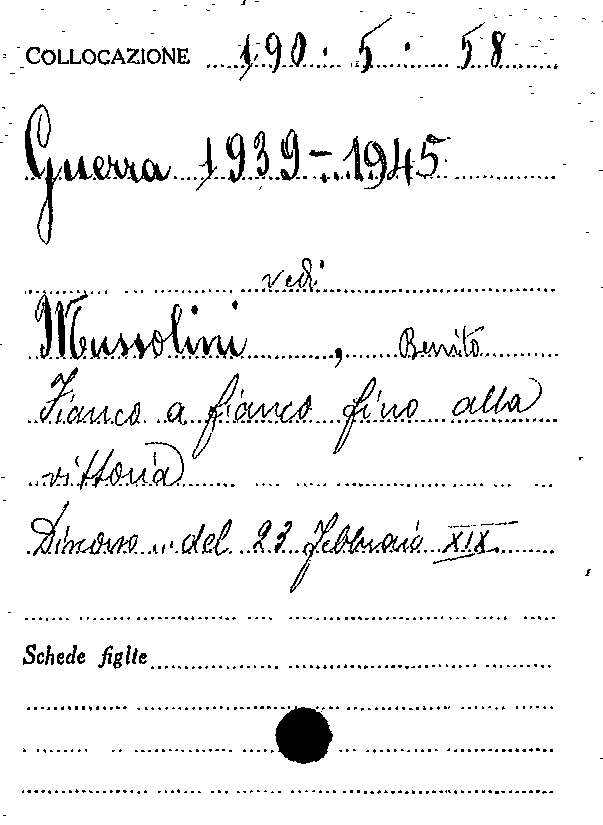 COLLOCAZIONE 190. 5. 58
Guerra 1939-1945
vedi
Mussolini, Benito
Fianco a fianco fino alla
vittoria
Discorso del 23 Febbraio XIX.
Schede figlie